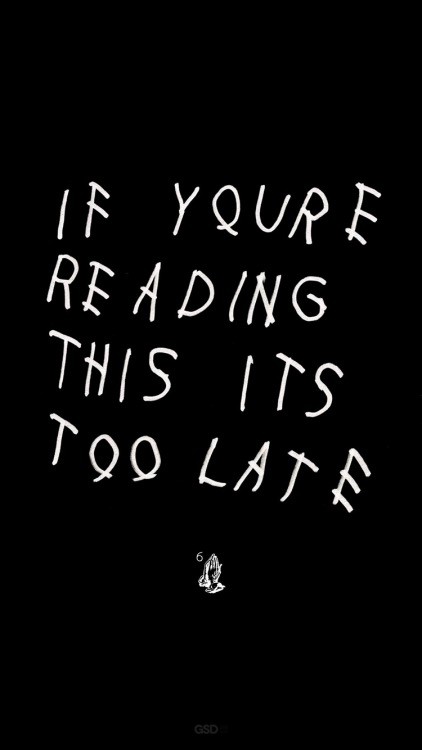 IF YOURE
READING
THIS ITS
TOO LATE
6
GSD